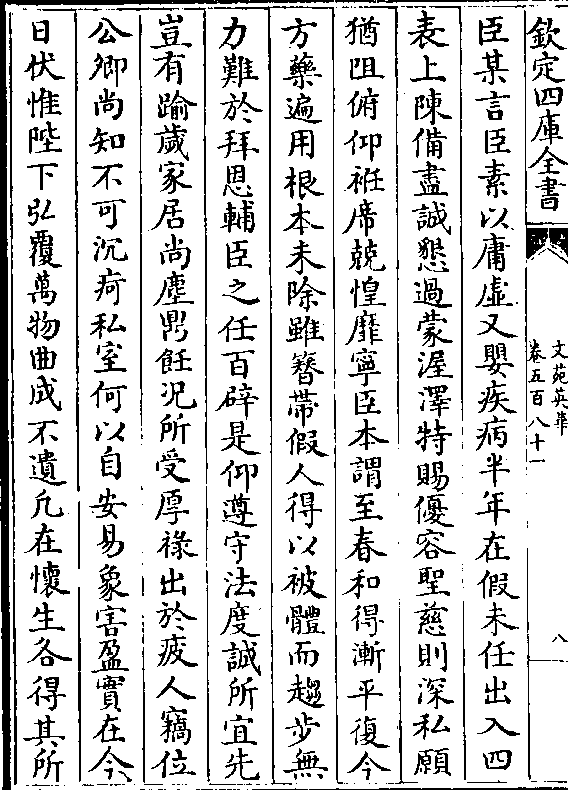 欽定四庫全書
文苑英華
卷五百八十一
八
臣某言臣素以庸虛又嬰疾病半年在假未任出入四
表上陳備盡誠懇過蒙渥澤特賜優容聖慈則深私願
猶阻俯仰袵席兢惶靡寧臣本謂至春和得漸平復今
方藥遍用根本未除雖簪帶假人得以被體而趨步無
力難於拜恩輔臣之任百辟是仰遵守法度誠所宜先
豈有踰歲家居尚塵鼎飪况所受厚祿出於疲人竊位
公卿尚知不可沉疴私室何以自安易象害盈實在今
日伏惟陛下弘覆萬物曲成不遺凢在懷生各得其所